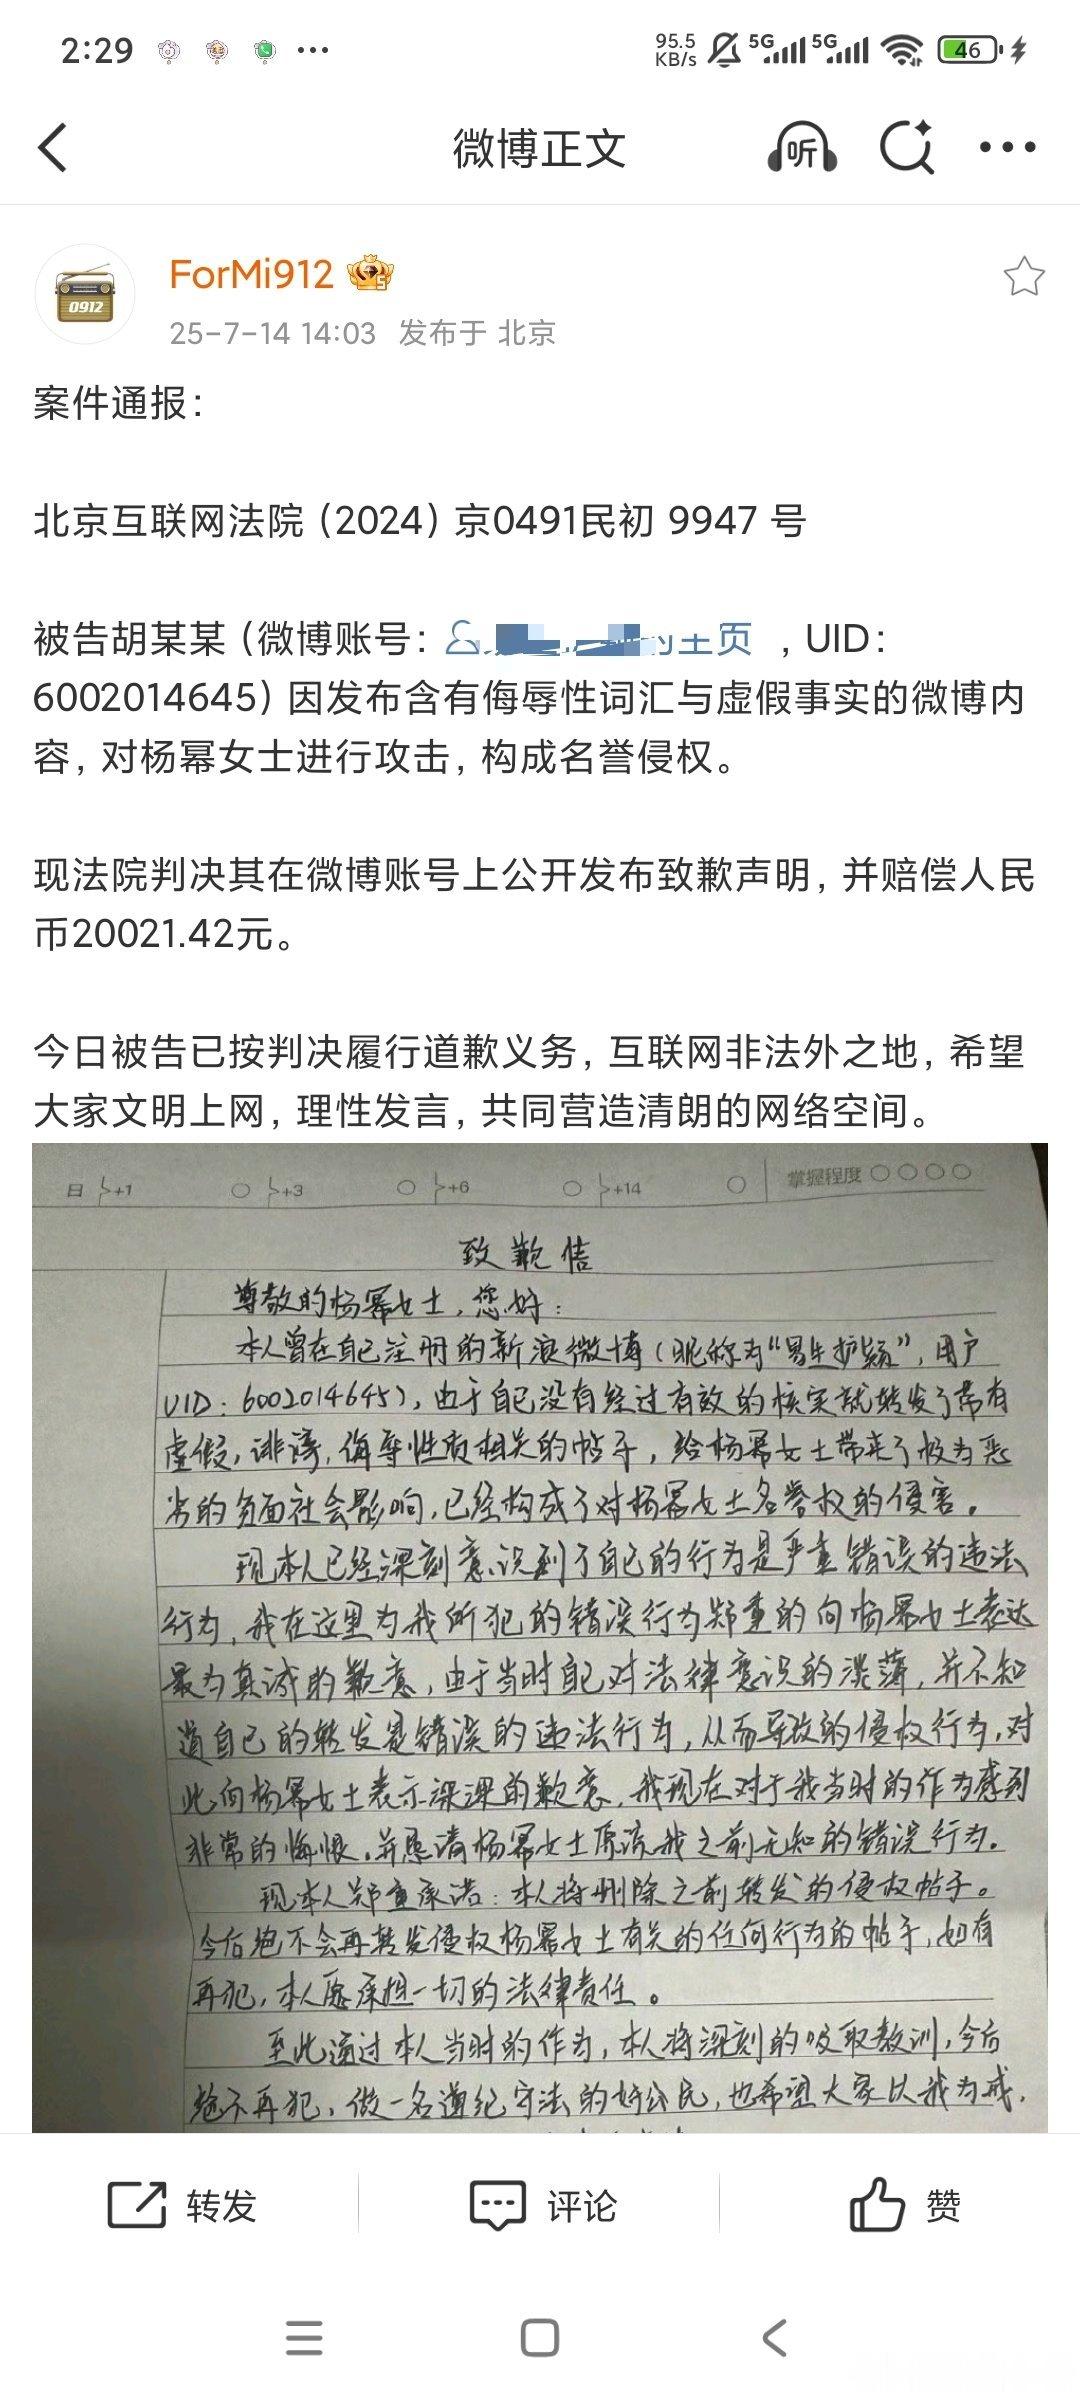 2:29
95.5
KB/s
5G
5G
46
微博正文
听
0912
ForMi912
5
25-7-14 14:03 发布于 北京
案件通报：
北京互联网法院（2024）京0491民初 9947 号
被告胡某某（微博账号： 的主页 ，UID：
6002014645）因发布含有侮辱性词汇与虚假事实的微博内
容，对杨幂女士进行攻击，构成名誉侵权。
现法院判决其在微博账号上公开发布致歉声明，并赔偿人民
币20021.42元。
今日被告已按判决履行道歉义务，互联网非法外之地，希望
大家文明上网，理性发言，共同营造清朗的网络空间。
日 +1 +3 +6 +14 掌握程度
致歉信
尊敬的杨幂女士，您好：
本人曾在自己注册的新浪微博（昵称为“易生护颖”，用户
UID：6002014645），由于自己没有经过有效的核实就转发了带有
虚假，诽谤，侮辱性质相关的帖子，给杨幂女士带来了极为恶
劣的负面社会影响，已经构成了对杨幂女士名誉权的侵害。
现本人已经深刻意识到了自己的行为是严重错误的违法
行为，我在这里为我所犯的错误行为郑重的向杨幂女士表达
最为真诚的歉意，由于当时自己对法律意识的淡薄，并不知
道自己的转发是错误的违法行为，从而导致的侵权行为，对
此向杨幂女士表示深深的歉意，我现在对于我当时的作为感到
非常的悔恨，并恳请杨幂女士原谅我之前无知的错误行为。
现本人郑重承诺：本人将删除之前转发的侵权帖子。
今后绝不会再转发侵权杨幂女士有关的任何行为的帖子，如有
再犯，本人愿承担一切的法律责任。
至此通过本人当时的作为，本人将深刻的吸取教训，今后
绝不再犯，做一名遵纪守法的好公民，也希望大家以我为戒，
转发
评论
赞